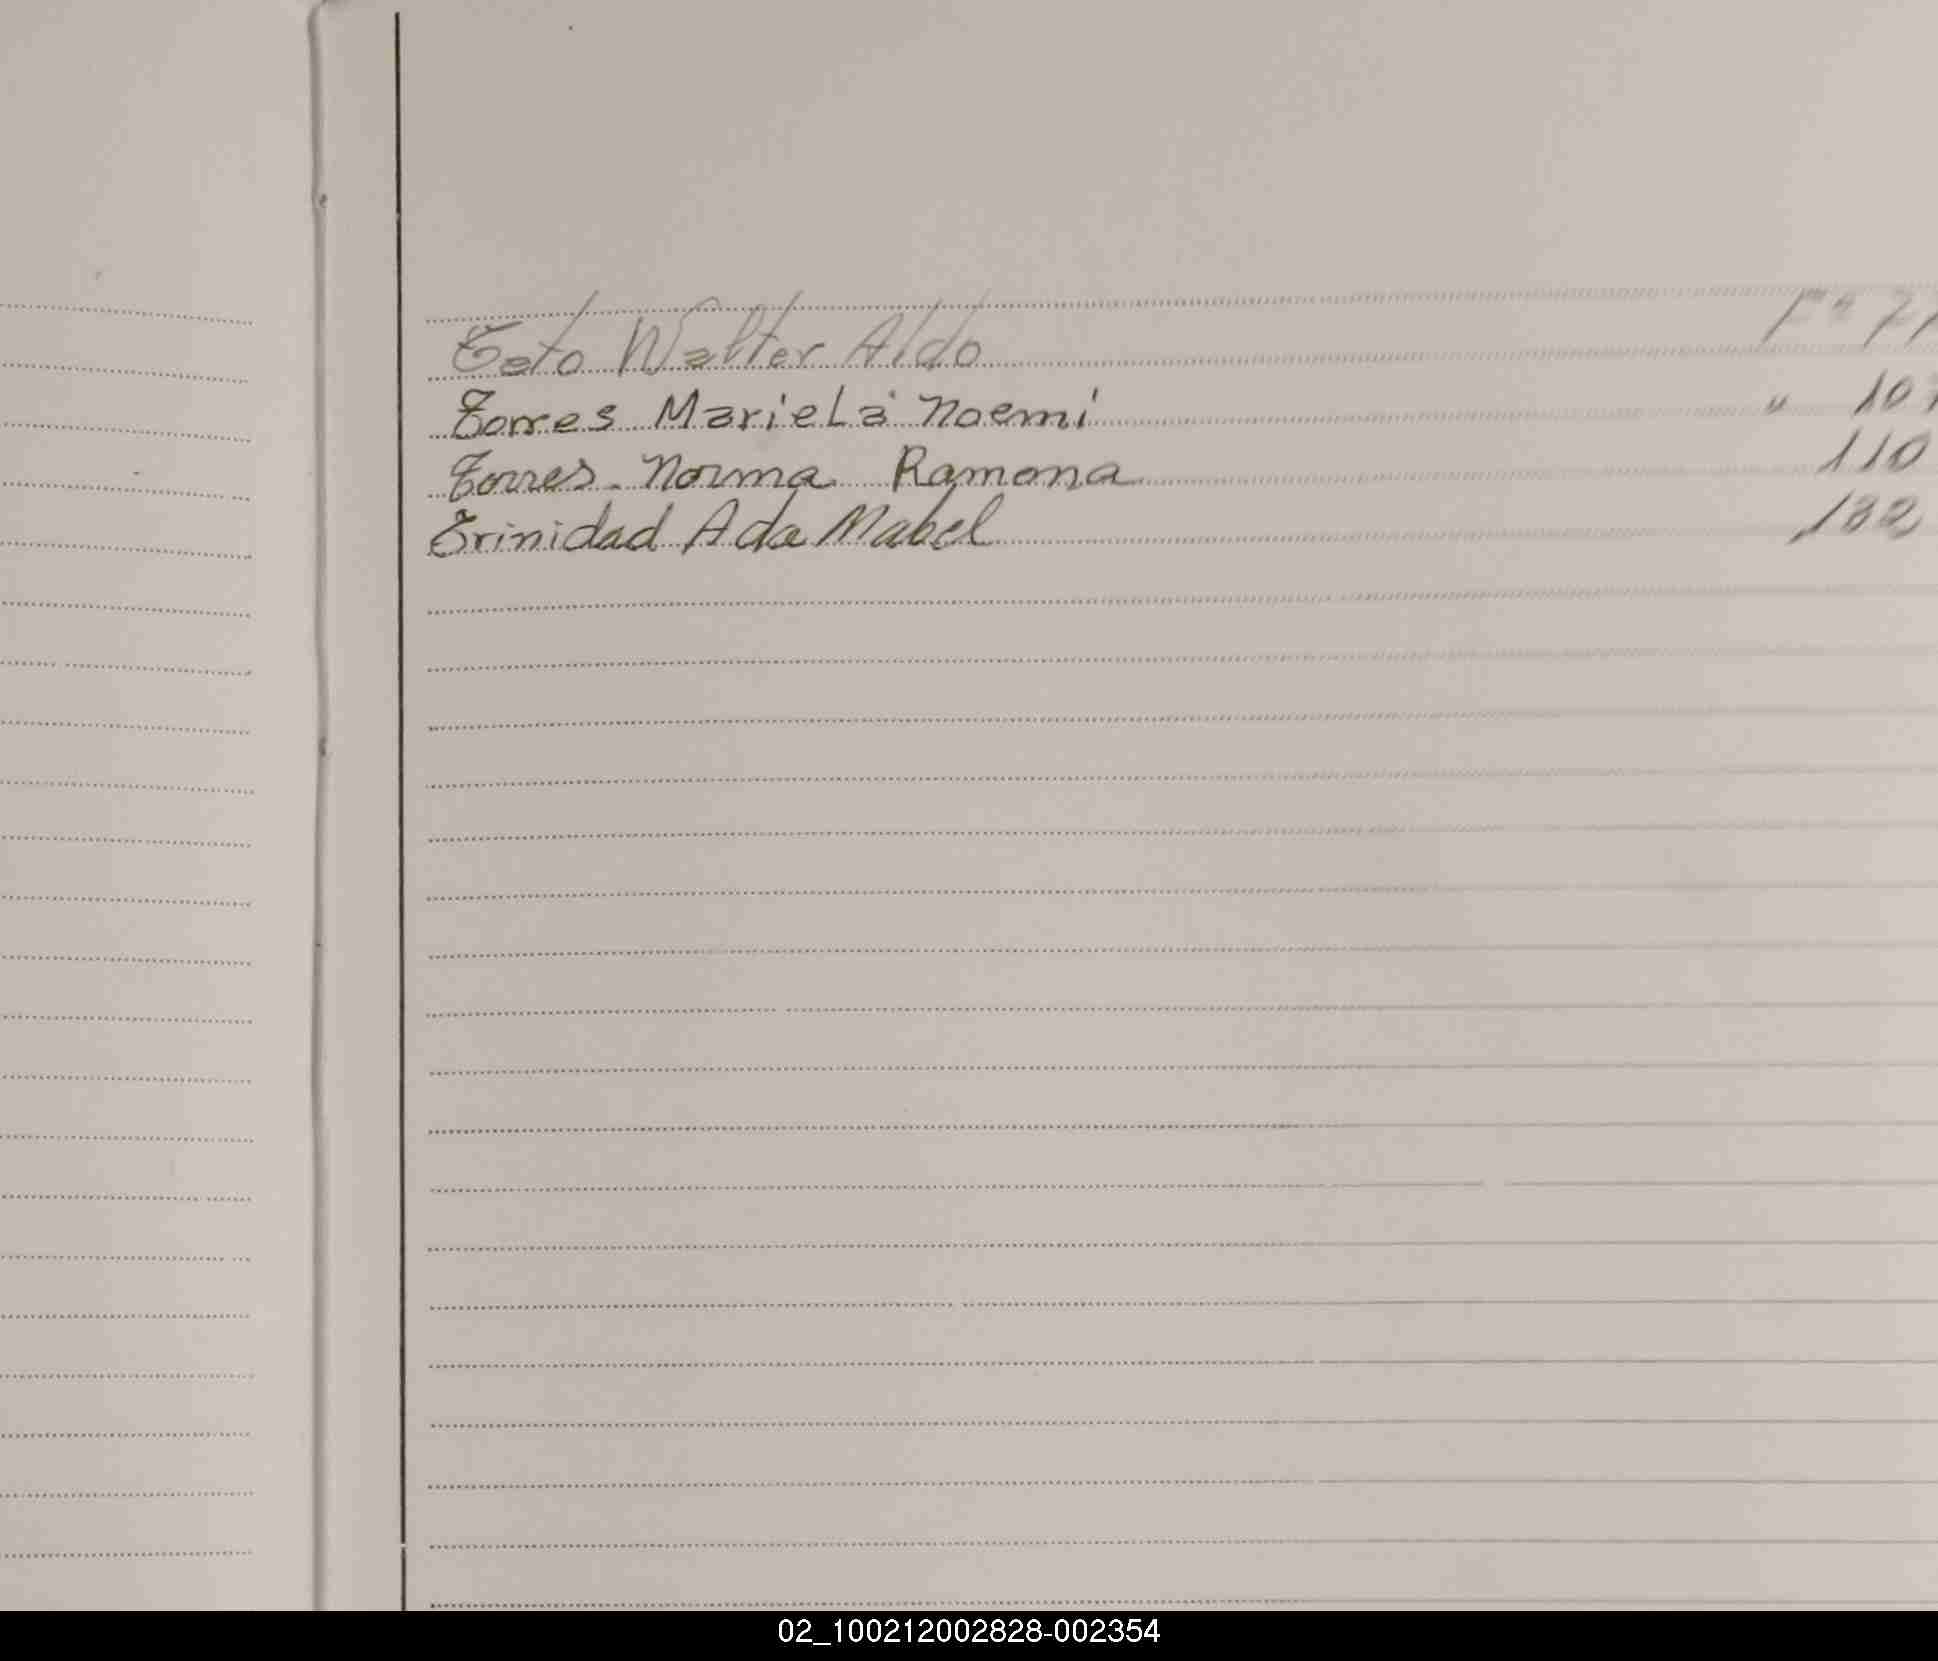 Teto Walter Aldo
Torres Mariela Noemi " 10
Torres Norma Ramona 110
Trinidad Ada Mabel 132
02_100212002828-002354